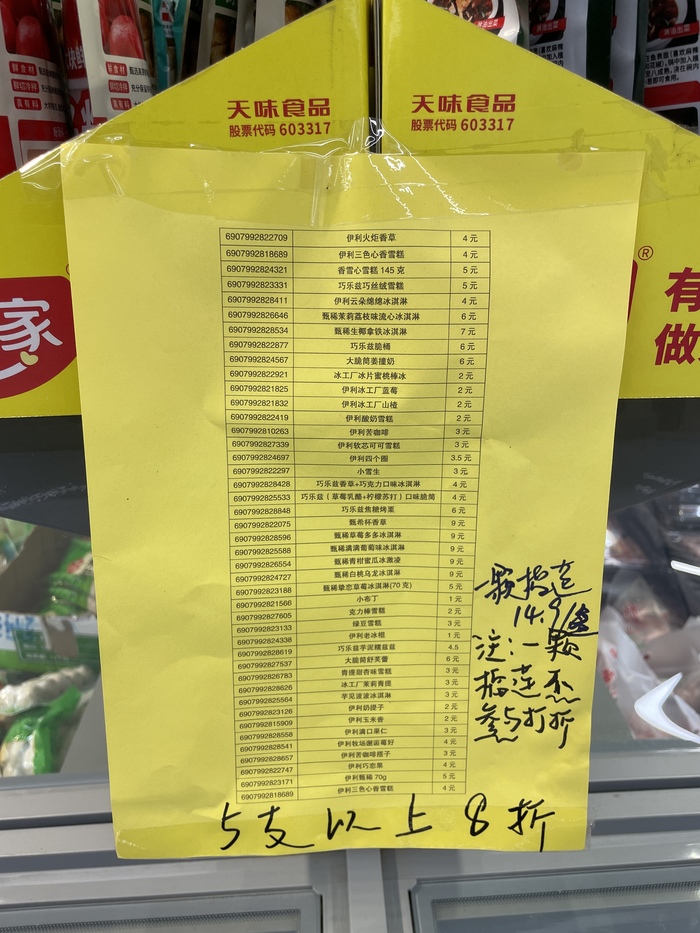 天味食品
股票代码 603317
天味食品
股票代码 603317
家
有
做
6907992822709 伊利火炬香草 4 元
6907992818689 伊利三色心香雪糕 4 元
6907992824321 香雪心雪糕 145 克 5 元
6907992823331 巧乐兹巧丝绒雪糕 5 元
6907992828411 伊利云朵绵绵冰淇淋 4 元
6907992826646 甄稀茉莉荔枝味流心冰淇淋 6 元
6907992828534 甄稀生椰拿铁冰淇淋 7 元
6907992822877 巧乐兹脆桶 6 元
6907992824567 大脆筒姜撞奶 6 元
6907992822921 冰工厂冰片蜜桃棒冰 2 元
6907992821825 伊利冰工厂蓝莓 2 元
6907992821832 伊利冰工厂山楂 2 元
6907992822419 伊利酸奶雪糕 2 元
6907992810263 伊利苦咖啡 3 元
6907992827339 伊利软芯可可雪糕 3 元
6907992824697 伊利四个圈 3.5 元
6907992822297 小雪生 3 元
6907992828428 巧乐兹香草+巧克力口味冰淇淋 4 元
6907992825533 巧乐兹（草莓乳酪+柠檬苏打）口味脆筒 4 元
6907992828848 巧乐兹焦糖烤栗 6 元
6907992822075 甄希杯香草 9 元
6907992828596 甄稀草莓多多冰淇淋 9 元
6907992825588 甄稀满满葡萄味冰淇淋 9 元
6907992826554 甄稀青柑蜜瓜冰激凌 9 元
6907992824727 甄稀白桃乌龙冰淇淋 9 元
6907992823188 甄稀挚恋草莓冰淇淋(70 克) 5 元
6907992821566 小布丁 1 元
6907992827605 克力棒雪糕 2 元
6907992823133 绿豆雪糕 3 元
6907992824338 伊利老冰棍 1 元
6907992828619 巧乐兹芋泥糯兹兹 4.5
6907992827537 大脆筒舒芙蕾 6 元
6907992826783 青提甜杏味雪糕 3 元
6907992828626 冰工厂茉莉青提 3 元
6907992825564 芋见波波冰淇淋 3 元
6907992823126 伊利奶提子 2 元
6907992815909 伊利玉米香 2 元
6907992828558 伊利满口果仁 3 元
6907992828541 伊利牧场邂逅莓好 4 元
6907992828657 伊利苦咖啡搭子 3 元
6907992822747 伊利巧恋果 4 元
6907992823171 伊利甄稀 70g 5 元
6907992818689 伊利三色心香雪糕 4 元
一颗榴莲
14.9/盒
注:一颗
榴莲不
参与打折
5支以上8折